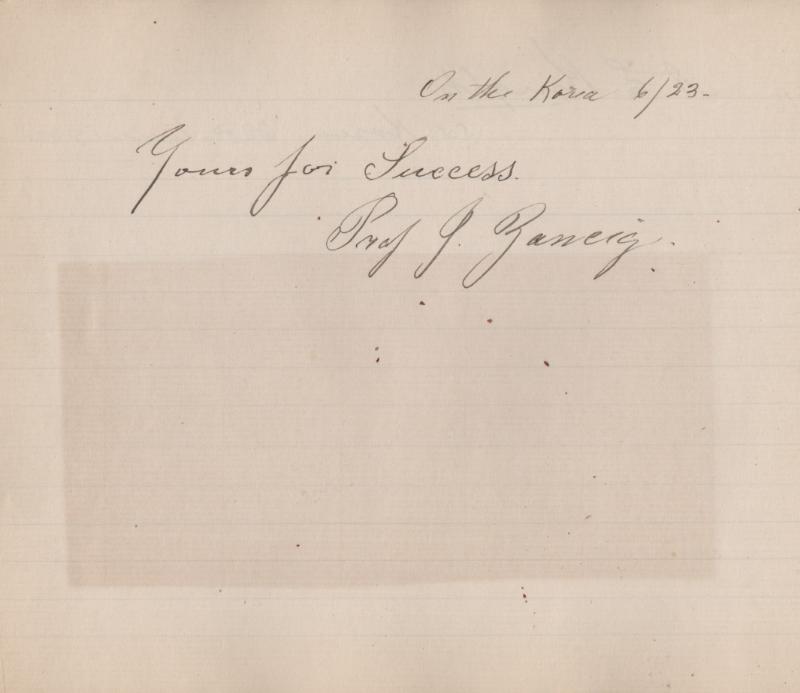 On the Korea 6/23-
Yours for Success.
Prof J. Zancig.